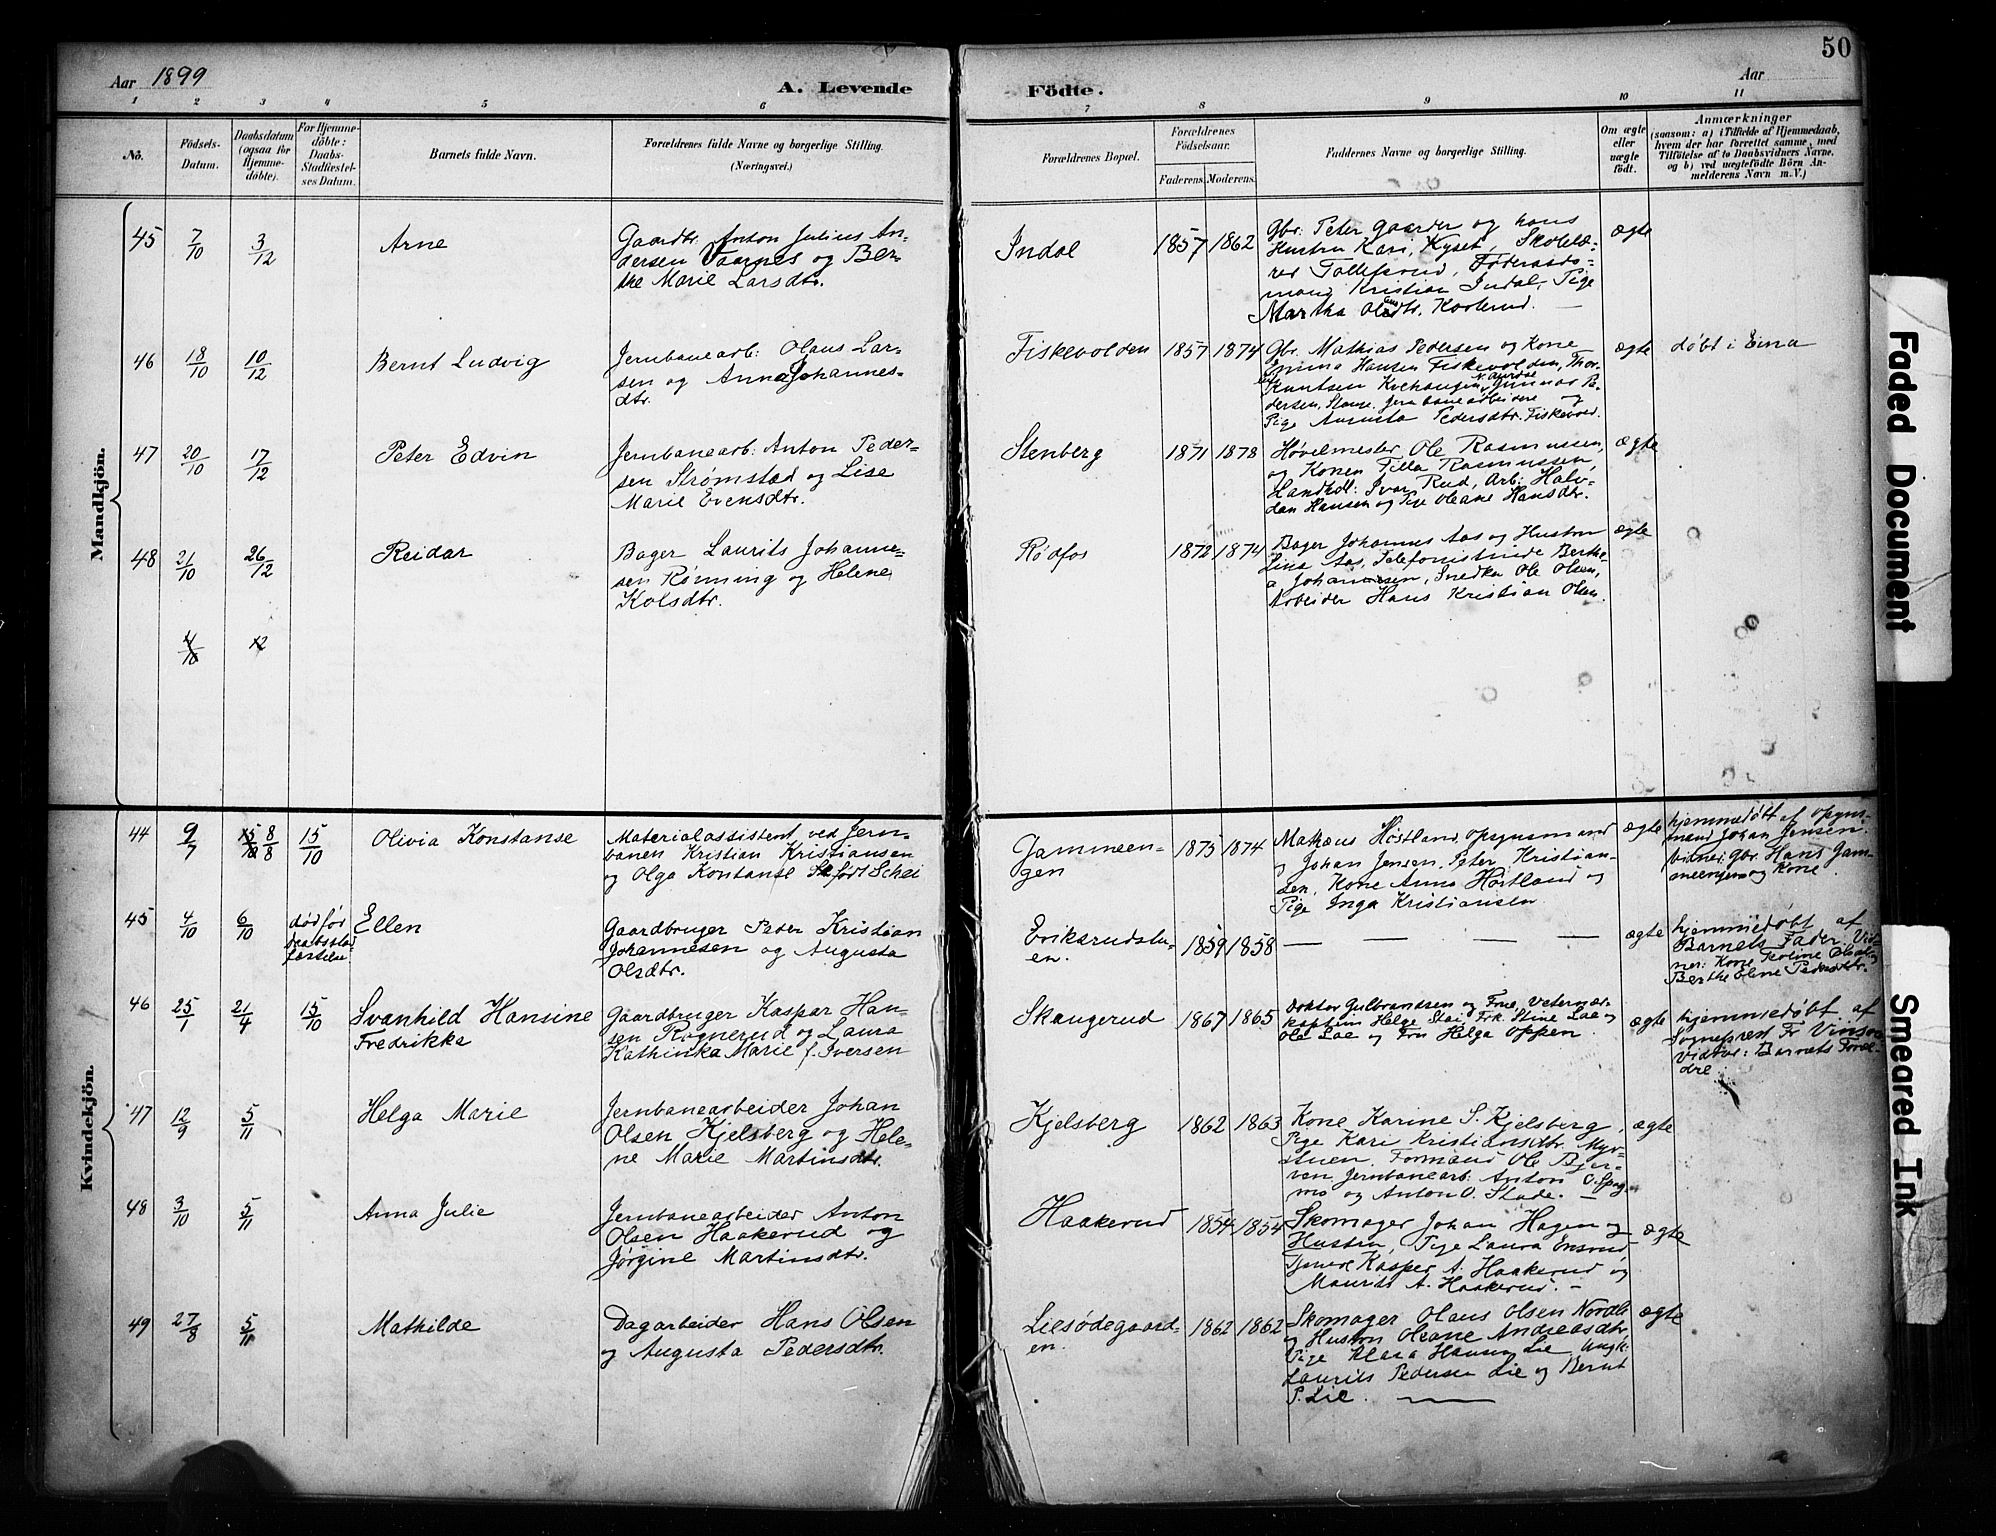 50
Aar 1899
A. Levende
Födte.
Aar
1 2 3 4 5 6 7 8 9 10 11
No.
Födsels-
Datum.
Daabsdatum
(ogsaa for
Hjemme-
döbte).
For Hjemme-
döbte:
Daabs-
Stadfæstel-
ses Datum.
Barnets fulde Navn.
Forældrenes fulde Navne og borgerlige Stilling.
(Næringsvei.)
Forældrenes Bopæl.
Forældrenes
Födselsaar.
Faderens. Moderens.
Faddernes Navne og borgerlige Stilling.
Om ægte
eller
uægte
födt.
Anmærkninger
(saasom: a) i Tilfælde af Hjemmedaab,
hvem der har forrettet samme, med
Tilföielse af to Daabsvidners Navne,
og b) ved uægtefödte Börn An-
melderens Navn m.V.)
Mandkjön.
45
7/10
3/12
Arne
Gaardbr. Anton Julius An-
dersen Taarnes og Ber-
the Marie Larsdtr.
Indal
1857 1862
Gbr. Peter Gaarder og hans
Hustru Kari, Kyset, Skolelæ-
rer Tollefsrud, Føderaads-
mand Kristian Indal, Pige
Martha Olsdtr.
ægte
46
18/10
10/12
Bernt Ludvig
Jernbanearb: Olaus Lar-
sen og Anna Johannes-
dtr.
Fiskevolden
1857 1874
Gbr. Mathias Pedersen og Kone
Emma Hansen Fiskevolden, Thor-
Knutsen Kvehaugen, Gunnar Pe-
dersen, Jernbanearbeidere og
Pige Augusta Pedersdtr. Fiskevold.
ægte
døbt i Eina
47
20/10
17/12
Peter Edvin
Jernbanearb: Anton Peder-
sen Strømstad og Lise
Marie Evensdtr.
Stenberg
1871 1878
Høvelmester Ole Rasmussen,
og Konen Tilla Rasmussen,
Handhdl: Ivar Rud, Arb: Halv-
dan Hansen og Pige Oleane Hansdtr.
ægte
48
21/10
26/12
Reidar
Bager Laurits Johanne-
sen Rønning og Helene
Kolsdtr.
Rødfos
1872 1874
Bager Johannes Aas og Hustru
Lina Aas, Telefonistinde Berthe-
a Johannesen, Snedker Ole Olsen,
Arbeider Hans Kristian Olsen.
ægte
Kvindekjön.
44
9/7
8/8
15/10
Olivia Konstanse
Materialassistent ved Jern-
banen Kristian Kristiansen
og Olga Kontanse født Schei
Jammeen-
gen
1873 1874
Mathæus Høstland, Opsynsmand
Johan Jensen, Peter Kristian-
sen, Kone Anna Høstland og
Pige Inga Kristiansen
ægte
hjemmedøbt af Opsyns-
mand Johan Jensen.
Vidner: Gbr. Hans Jam-
meengen og Kone.
45
4/10
6/10
død før
daabsstad-
fæstelse
Ellen
Gaardbruger Peder Kristian
Johannesen og Augusta
Olsdtr.
Eriksrudstu-
en.
1859 1858
— — — —
ægte
hjemmedøbt af
Barnets Fader. Vid-
ner: Kone
Berthe Eline Pedersdtr.
46
25/1
2/4
15/10
Svanhild Hansine
Fredrikke
Gaardbruger Kaspar Han-
sen Rognerud og Laura
Kathinka Marie f. Iversen
Skaugerud
1867 1865
Doktor Gulbrandsen og Frue, Veterinær-
kaptein Helge Stai, Frk. Stine Lae og
Ole Lae og Fru Helga Oppen.
ægte
hjemmedøbt af
Sogneprest Fr Vinsnes
Vidner: Barnets Foræl-
dre.
47
12/9
5/11
Helga Marie
Jernbanearbeider Johan
Olsen Kjelsberg og Hele-
ne Marie Martinsdtr.
Kjelsberg
1862 1863
Kone Karine S. Kjelsberg,
Pige Kari Kristiansdtr. Myr-
stuen, Formand Ole Bjer-
ven, Jernbanearb: Anton
og Anton O. Stade. —
ægte
48
3/10
5/11
Anna Julie
Jernbanearbeider Anton
Olsen Haakerud og
Jørgine Martinsdtr.
Haakerud
1854 1854
Skomager Johan Hagen og
Hustru, Pige Laura Ensrud,
Tjener Kasper A. Haakerud og
Maurits A. Haakerud. —
ægte
49
27/8
5/11
Mathilde
Dagarbeider Hans Olsen
og Augusta Pedersdtr.
Liesødegaard-
en.
1862 1862
Skomager Olaus Olsen Nordli
og Hustru Oleane Andreasdtr.
Pige Klara Hansen Lie, Ungk:
Laurits Pedersen Lie og Bernt
P. Lie.
ægte
Faded Document
Smeared Ink